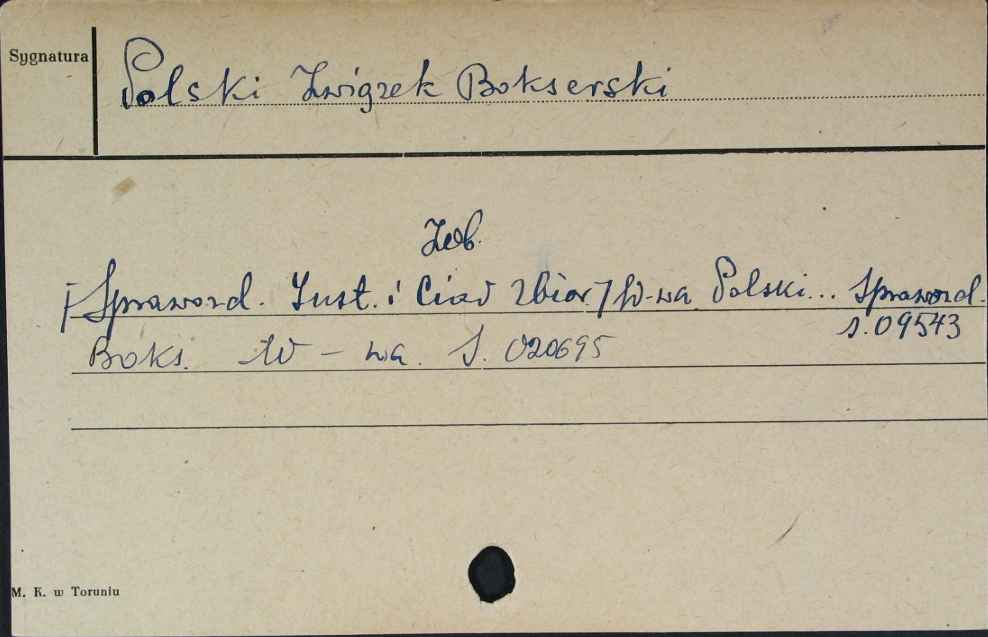 Sygnatura
Polski Związek Bokserski
Zob.
[Sprawozd. Inst. i Ciał Zbior.] W-wa Polski... Sprawozd.
s. 09543
Boks. W-wa. S. 020695
M. K. w Toruniu